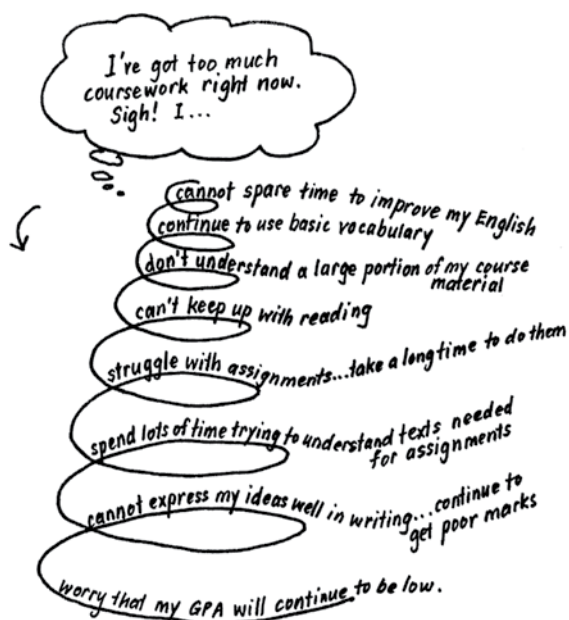 I've got too much
coursework right now.
Sigh! I...
cannot spare time to improve my English
continue to use basic vocabulary
don't understand a large portion of my course
material
can't keep up with reading
struggle with assignments...take a long time to do them
spend lots of time trying to understand texts needed
for assignments
cannot express my ideas well in writing...continue to
get poor marks
worry that my GPA will continue to be low.